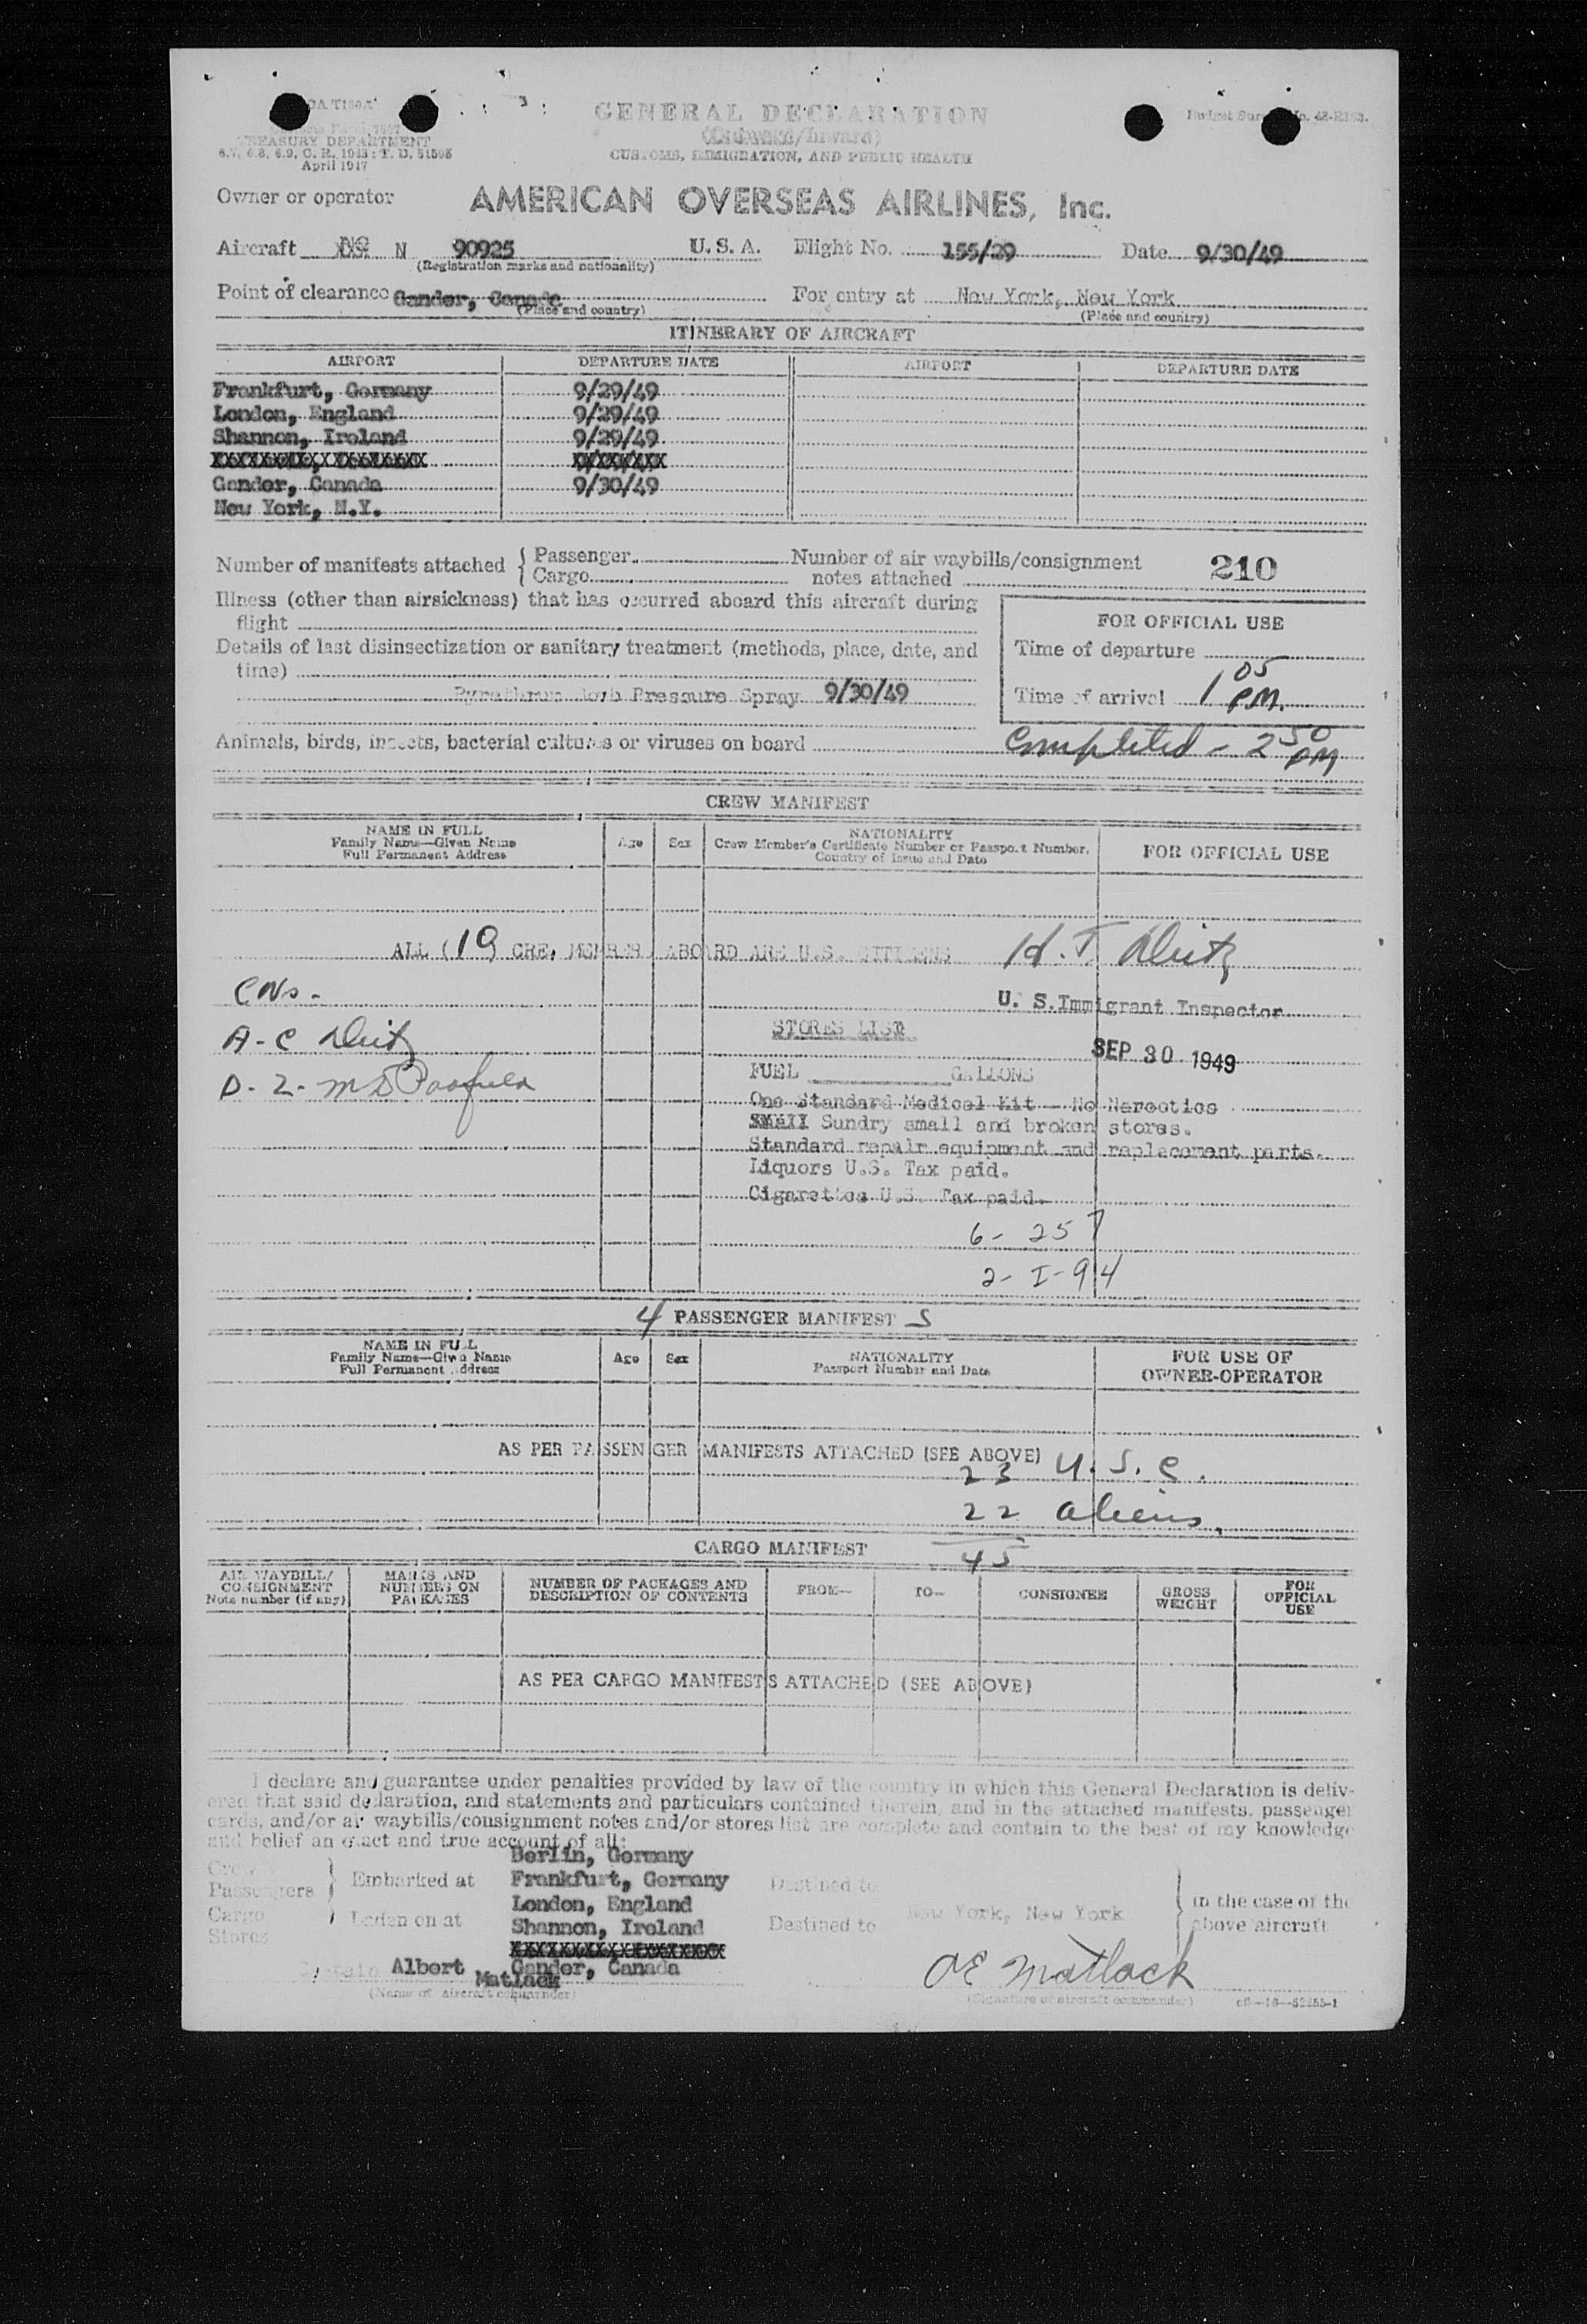 GENERAL DECLARATION
(Outward/Inward)
CUSTOMS, IMMIGRATION, AND PUBLIC HEALTH
TREASURY DEPARTMENT
6.7, 6.8, 6.9, C. R. 1943; T. D. 51595
April 1947
Owner or operator AMERICAN OVERSEAS AIRLINES, Inc.
Aircraft N 90925 U. S. A. Flight No. 155/29 Date 9/30/49
(Registration marks and nationality)
Point of clearance Gander, Canada For entry at New York, New York
(Place and country) (Place and country)
ITINERARY OF AIRCRAFT
AIRPORT DEPARTURE DATE AIRPORT DEPARTURE DATE
Frankfurt, Germany 9/29/49
London, England 9/29/49
Shannon, Ireland 9/29/49
Gander, Canada 9/30/49
New York, N.Y.
Number of manifests attached { Passenger Number of air waybills/consignment 210
Cargo notes attached
Illness (other than airsickness) that has occurred aboard this aircraft during
flight
FOR OFFICIAL USE
Details of last disinsectization or sanitary treatment (methods, place, date, and
time)
Time of departure
Pressure Spray 9/30/49
Time of arrival 1 05 PM.
Animals, birds, insects, bacterial cultures or viruses on board
Completed - 2 50 PM
CREW MANIFEST
NAME IN FULL
Family Name—Given Name
Full Permanent Address
Age Sex
NATIONALITY
Crew Member's Certificate Number or Passport Number,
Country of Issue and Date
FOR OFFICIAL USE
ALL (10) CREW MEMBERS ABOARD ARE U.S. CITIZENS H. T. Deitz
U. S. Immigrant Inspector
A-C Deitz
STORES LIST
SEP 30 1949
FUEL GALLONS
One Standard Medical Kit - No Narcotics
Sundry small and broken stores.
Standard repair equipment and replacement parts.
Liquors U.S. Tax paid.
Cigarettes U.S. Tax paid.
6- 257
2- I-94
4 PASSENGER MANIFEST S
NAME IN FULL
Family Name—Given Name
Full Permanent Address
Age Sex
NATIONALITY
Passport Number and Date
FOR USE OF
OWNER-OPERATOR
AS PER PASSENGER MANIFESTS ATTACHED (SEE ABOVE)
23 U.S.C.
22 aliens
45
CARGO MANIFEST
AIR WAYBILL/
CONSIGNMENT
Note number (if any)
MARKS AND
NUMBERS ON
PACKAGES
NUMBER OF PACKAGES AND
DESCRIPTION OF CONTENTS
FROM— TO— CONSIGNEE
GROSS
WEIGHT
FOR
OFFICIAL
USE
AS PER CARGO MANIFESTS ATTACHED (SEE ABOVE)
I declare and guarantee under penalties provided by law of the country in which this General Declaration is deliv-
ered that said declaration, and statements and particulars contained therein, and in the attached manifests, passenger
cards, and/or air waybills/consignment notes and/or stores list are complete and contain to the best of my knowledge
and belief an exact and true account of all:
Berlin, Germany
Crew
Passengers } Embarked at Frankfurt, Germany Destined to
London, England New York, New York
Cargo
Stores } Laden on at Shannon, Ireland Destined to
in the case of the
above aircraft
Gander, Canada
Captain Albert Matlack
(Name of aircraft commander)
OE Matlack
(Signature of aircraft commander)
c6—16—52255-1